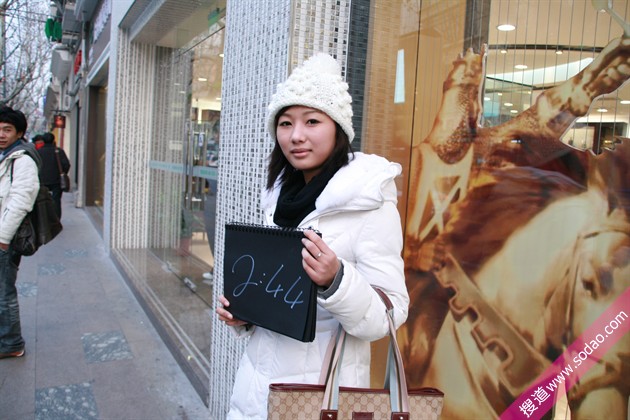 2:44
搜道 www.sodao.com